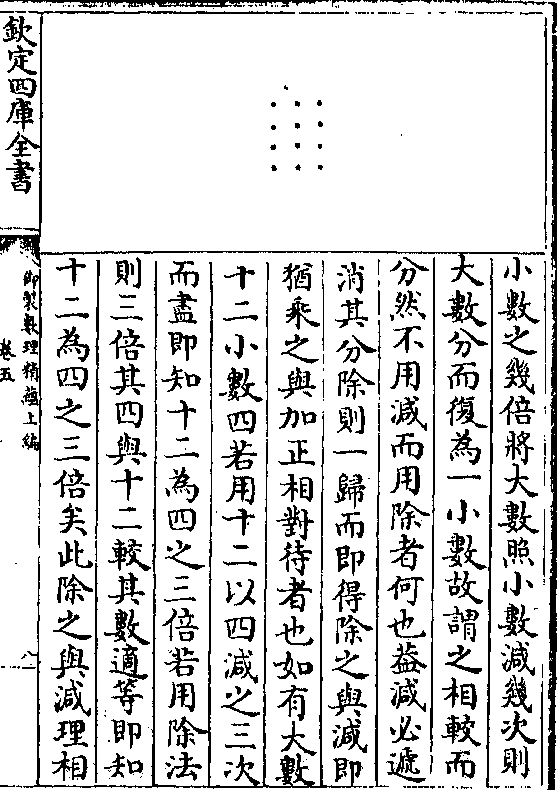 小數之幾倍將大數照小數減幾次則
大數分而復為一小數故謂之相較而
分然不用減而用除者何也葢減必遞
消其分除則一歸而即得除之與減即
猶乘之與加正相對待者也如有大數
十二小數四若用十二以四減之三次
而盡即知十二為四之三倍若用除法
則三倍其四與十二較其數適等即知
十二為四之三倍矣此除之與減理相
欽定四庫全書
御製數理精蘊上編
卷五